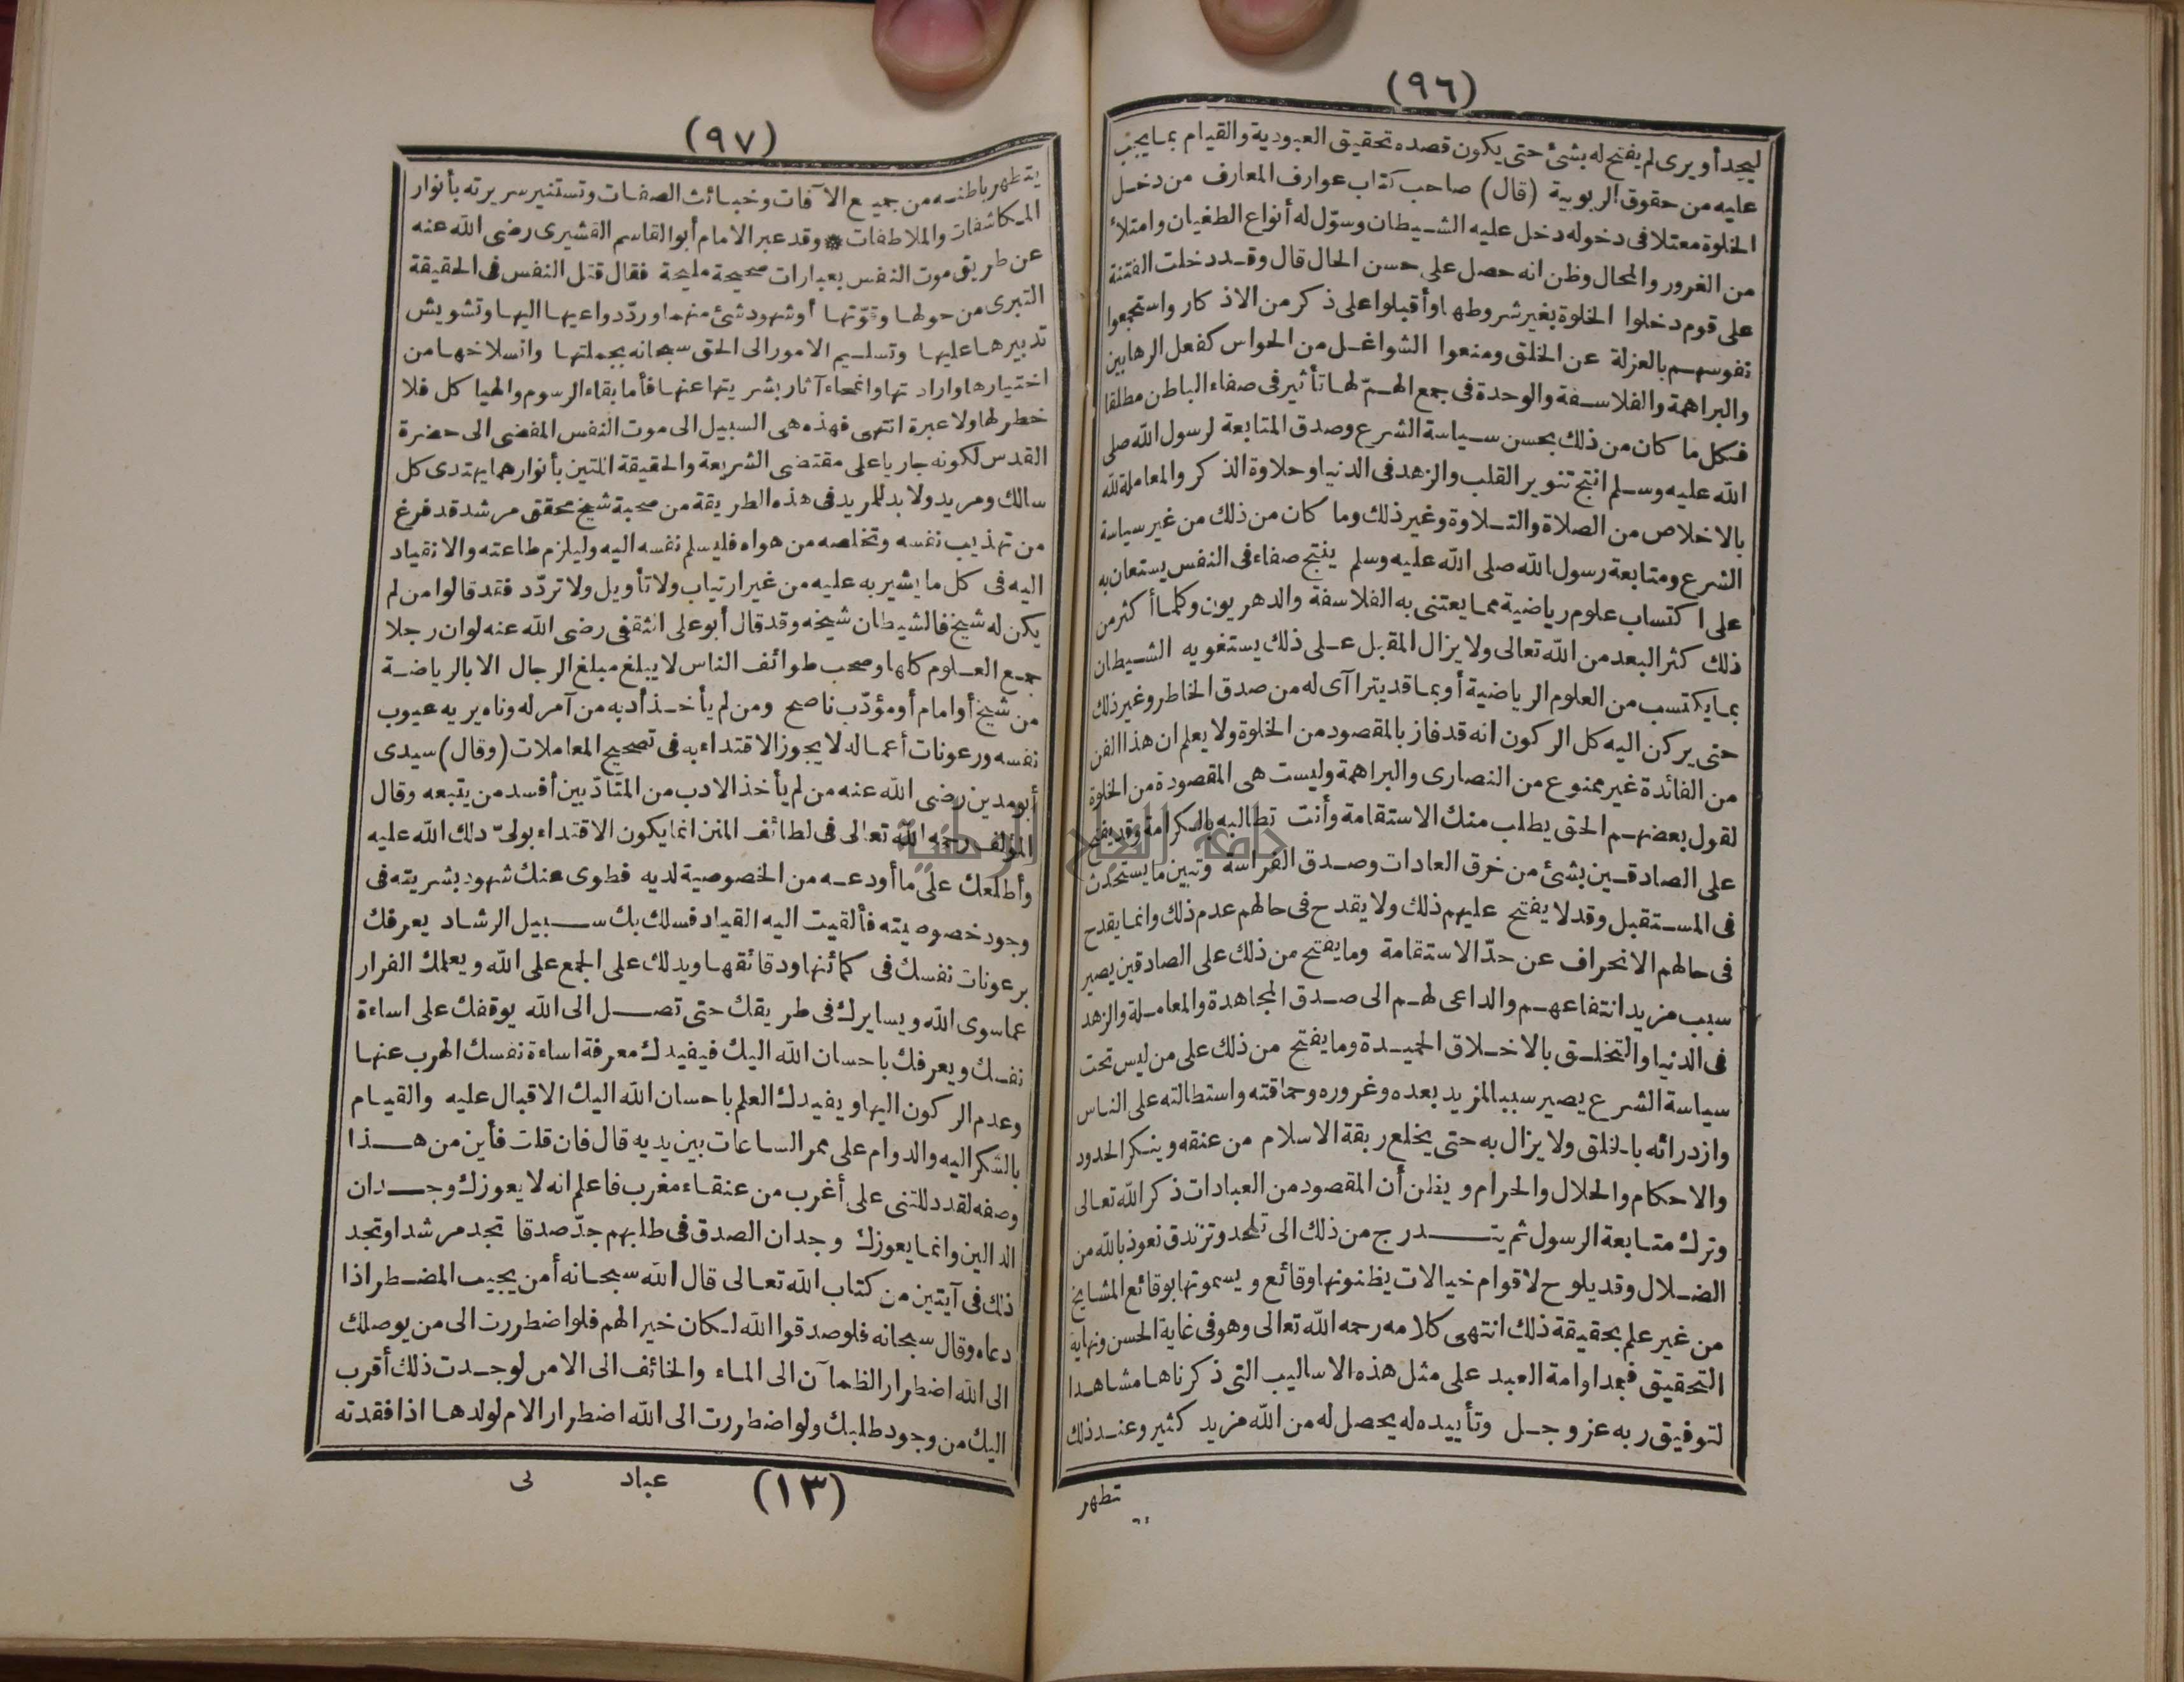 (٩٦)
ليجد أو يرى لم يفتح له بشئ حتى يكون قصده تحقيق العبودية والقيام بما يجب
عليه من حقوق الربوبية (قال) صاحب كتاب عوارف المعارف من دخل
الخلوة معتلا فى دخوله دخل عليه الشيطان وسوّل له أنواع الطغيان وامتلأ
من الغرور والمحال وظن انه حصل على حسن الحال قال وقد دخلت الفتنة
على قوم دخلوا الخلوة بغير شروطها وأقبلوا على ذكر من الاذكار واستجمعوا
نفوسهم بالعزلة عن الخلق ومنعوا الشواغل من الحواس كفعل الرهابين
والبراهمة والفلاسفة والوحدة فى جمع الهمّ لها تأثير فى صفاء الباطن مطلقا
فكل ما كان من ذلك بحسن سياسة الشرع وصدق المتابعة لرسول الله صلى
الله عليه وسلم انتج تنوير القلب والزهد فى الدنيا وحلاوة الذكر والمعاملة لله
بالاخلاص من الصلاة والتلاوة وغير ذلك وما كان من ذلك من غير سياسة
الشرع ومتابعة رسول الله صلى الله عليه وسلم ينتج صفاء فى النفس يستعان به
على اكتساب علوم رياضية مما يعتنى به الفلاسفة والدهريون وكلما أكثر من
ذلك كثر البعد من الله تعالى ولا يزال المقبل على ذلك يستغويه الشيطان
بما يكتسب من العلوم الرياضية أو بما قد يترا آى له من صدق الخاطر وغير ذلك
حتى يركن اليه كل الركون انه قد فاز بالمقصود من الخلوة ولا يعلم ان هذا الفن
من الفائدة غير ممنوع من النصارى والبراهمة وليست هى المقصودة من الخلوة
لقول بعضهم الحق يطلب منك الاستقامة وأنت تطالبه بالكرامة وقد يفتح
على الصادقين بشئ من خرق العادات وصدق الفراسة وتبين ما يستحدث
فى المستقبل وقد لا يفتح عليهم ذلك ولا يقدح فى حالهم عدم ذلك وانما يقدح
فى حالهم الانحراف عن حدّ الاستقامة وما يفتح من ذلك على الصادقين يصير
سبب مزيد انتفاعهم والداعى لهم الى صدق المجاهدة والمعاملة والزهد
فى الدنيا والتخلق بالاخلاق الحميدة وما يفتح من ذلك على من ليس تحت
سياسة الشرع يصير سببا لمزيد بعده وغروره وحماقته واستطالته على الناس
وازدرائه بالخلق ولا يزال به حتى يخلع ربقة الاسلام من عنقه وينكر الحدود
والاحكام والحلال والحرام ويظن أن المقصود من العبادات ذكر الله تعالى
وترك متابعة الرسول ثم يتدرج من ذلك الى تلحد وتزندق نعوذ بالله من
الضلال وقد يلوح لاقوام خيالات يظنونها وقائع ويسمونها بوقائع المشايخ
من غير علم بحقيقة ذلك انتهى كلامه رحمه الله تعالى وهو فى غاية الحسن ونهاية
التحقيق فبمداوامة العبد على مثل هذه الاساليب التى ذكرناها مشاهدا
لتوفيق ربه عز وجل وتأييده له يحصل له من الله مزيد كثير وعند ذلك
تطهر
(٩٧)
يتطهر باطنه من جميع الآفات وخبائث الصفات وتستنير سريرته بأنوار
المكاشفات والملاطفات * وقد عبر الامام أبو القاسم القشيرى رضى الله عنه
عن طريق موت النفس بعبارات صحيحة مليحة فقال قتل النفس فى الحقيقة
التبرى من حولها وقوّتها أو شهود شئ منهما وردّ دواعيها اليها وتشويش
تدبيرها عليها وتسليم الامور الى الحق سبحانه بجملتها وانسلاخها من
اختيارها وارادتها وانمحاء آثار بشريتها عنها فأما بقاء الرسوم والهياكل فلا
خطر لها ولا عبرة انتهى فهذه هى السبيل الى موت النفس المفضى الى حضرة
القدس لكونه جاريا على مقتضى الشريعة والحقيقة اللتين بأنوارهما يهتدى كل
سالك ومريد ولا بد للمريد فى هذه الطريقة من صحبة شيخ محقق مرشد قد فرغ
من تهذيب نفسه وتخلصه من هواه فليسلم نفسه اليه وليلزم طاعته والانقياد
اليه فى كل ما يشير به عليه من غير ارتياب ولا تأويل ولا تردّد فقد قالوا من لم
يكن له شيخ فالشيطان شيخه وقد قال أبو على الثقفى رضى الله عنه لو ان رجلا
جمع العلوم كلها وصحب طوائف الناس لا يبلغ مبلغ الرجال الا بالرياضة
من شيخ أو امام أو مؤدّب ناصح ومن لم يأخذ أدبه من آمر له وناه يريه عيوب
نفسه ورعونات أعماله لا يجوز الاقتداء به فى تصحيح المعاملات (وقال) سيدى
أبو مدين رضى الله عنه من لم يأخذ الادب من المتأدّبين أفسد من يتبعه وقال
المؤلف رحمه الله تعالى فى لطائف المنن انما يكون الاقتداء بولىّ دلك الله عليه
وأطلعك على ما أودعه من الخصوصية لديه فطوى عنك شهود بشريته فى
وجود خصوصيته فألقيت اليه القياد فسلك بك سبيل الرشاد يعرفك
برعونات نفسك فى كمائنها ودقائقها ويدلك على الجمع على الله ويعلمك الفرار
عما سوى الله ويسايرك فى طريقك حتى تصل الى الله يوقفك على اساءة
نفسك ويعرفك باحسان الله اليك فيفيدك معرفة اساءة نفسك الهرب عنها
وعدم الركون اليها ويفيدك العلم باحسان الله اليك الاقبال عليه والقيام
بالشكر اليه والدوام على ممر الساعات بين يديه قال فان قلت فأين من هذا
وصفه لقد دللتنى على أغرب من عنقاء مغرب فاعلم انه لا يعوزك وجدان
الدالين وانما يعوزك وجدان الصدق فى طلبهم جدّ صدقا تجد مرشدا وتجد
ذلك فى آيتين من كتاب الله تعالى قال الله سبحانه أمن يجيب المضطر اذا
دعاه وقال سبحانه فلو صدقوا الله لكان خيرا لهم فلو اضطررت الى من يوصلك
الى الله اضطرار الظمآن الى الماء والخائف الى الامن لوجدت ذلك أقرب
اليك من وجود طلبك ولو اضطررت الى الله اضطرار الام لولدها اذا فقدته
(١٣) عباد لى
جامعة النجاح الوطنية